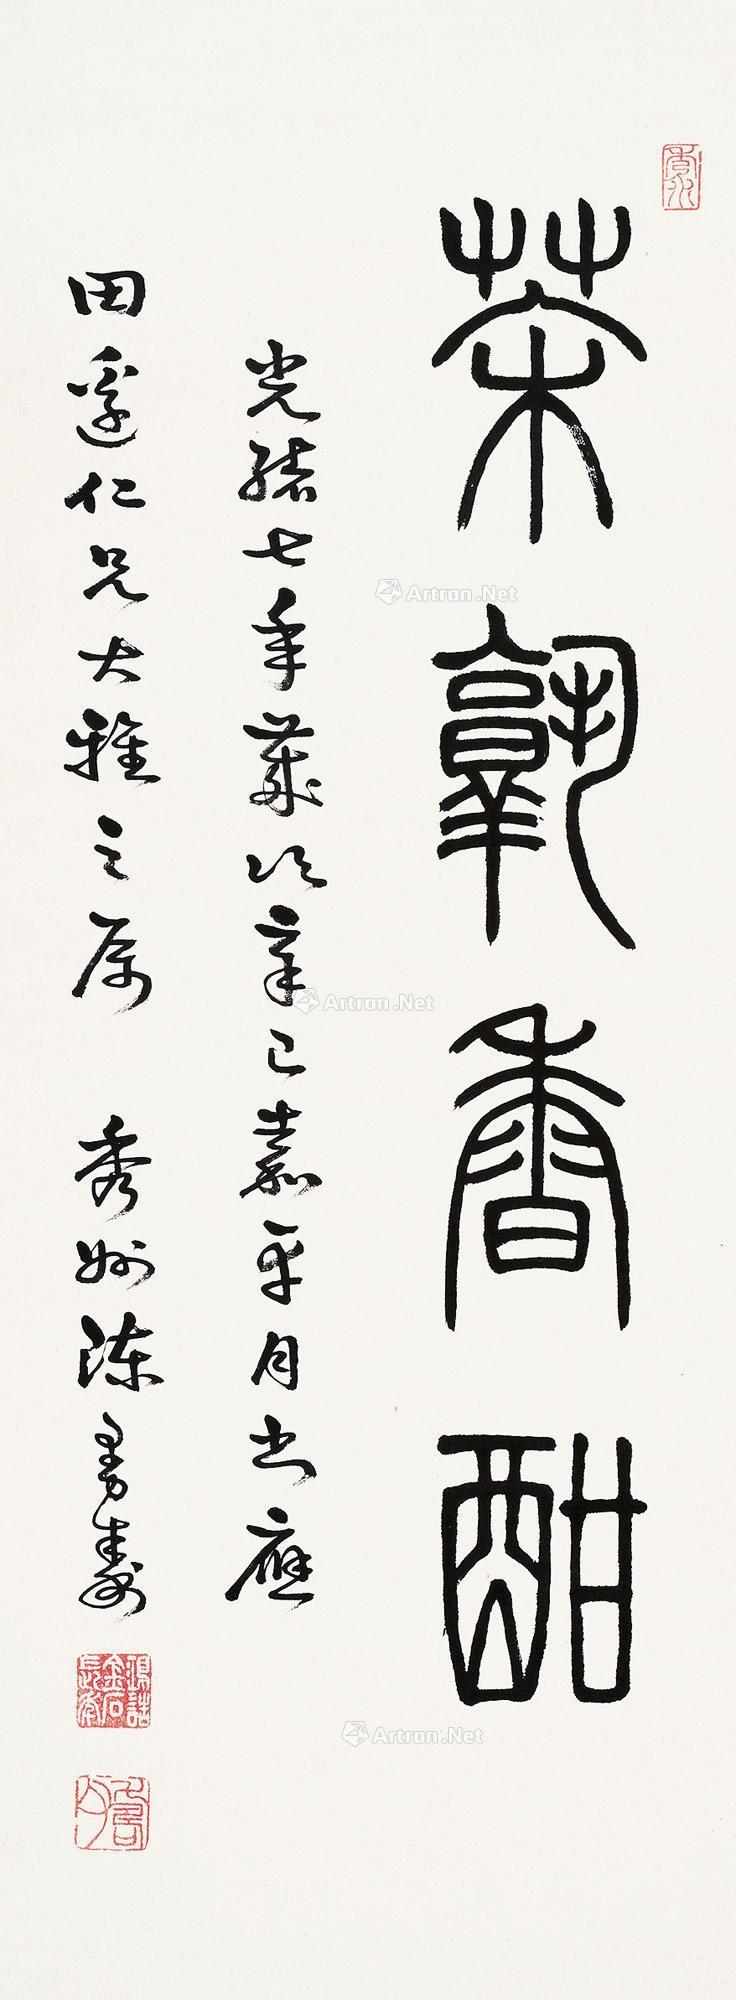 茶孰香酣
光緒七年歲次辛巳嘉平月書應
田邊仁兄大雅之屬 秀州陳曼壽
Artron.Net
Artron.Net
Artron.Net